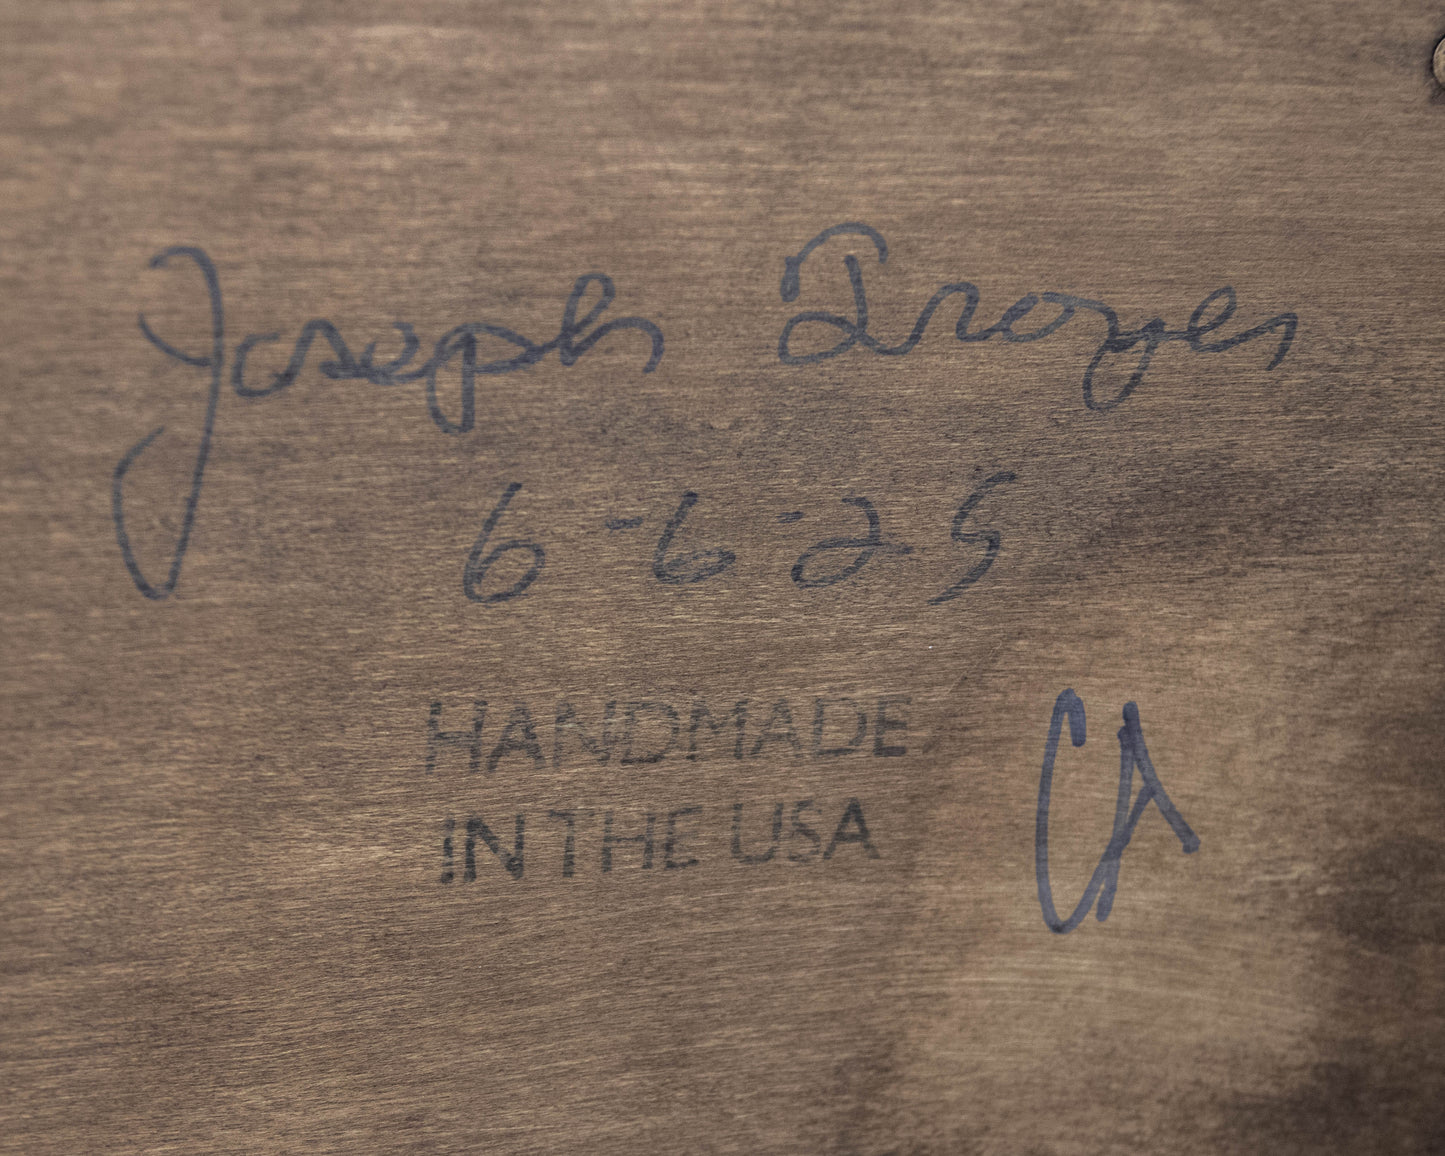 Joseph Troyer
6-6-25
HANDMADE
IN THE USA
CA